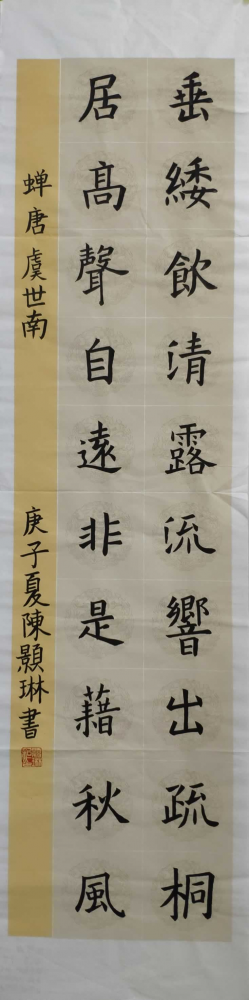 垂緌飲清露流響出疏桐
居高聲自遠非是藉秋風
蝉唐虞世南
庚子夏陳顥琳書